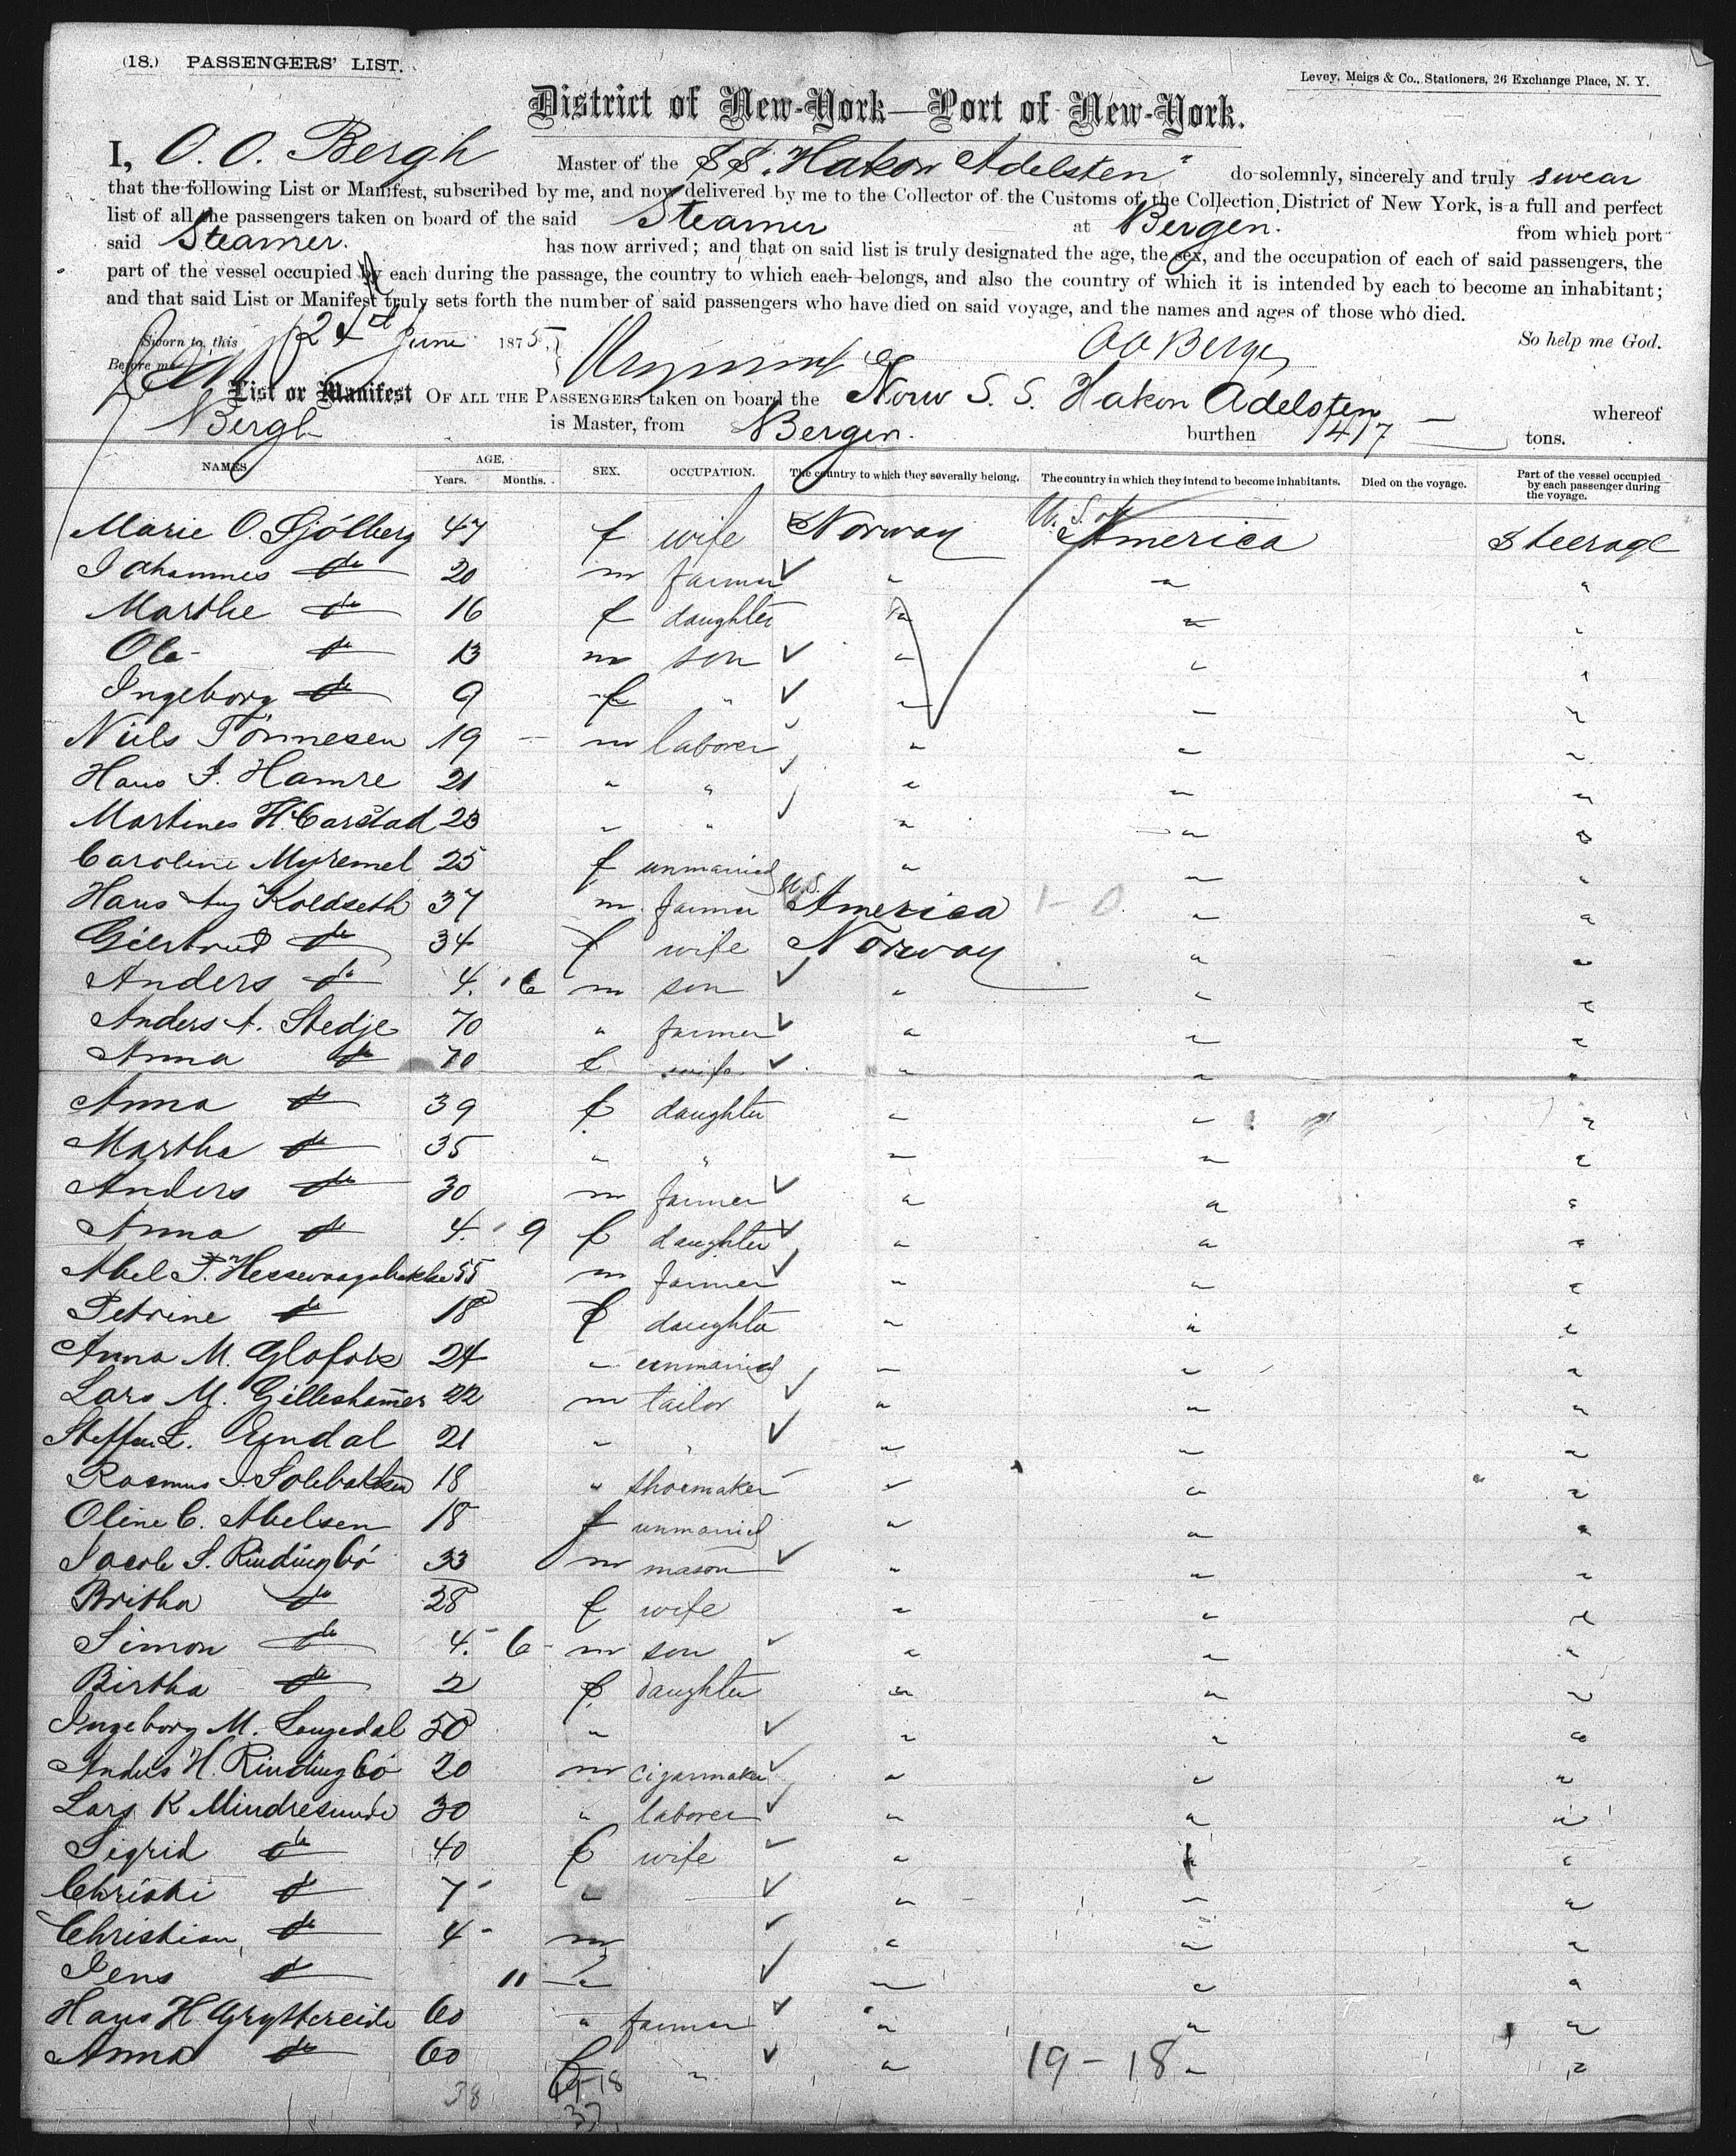 (18.) PASSENGERS' LIST.
Levey, Meigs & Co., Stationers, 26 Exchange Place, N. Y.
District of New-York—Port of New-York.
I, O. O. Bergh Master of the S.S. "Hakon Adelsten" do solemnly, sincerely and truly swear
that the following List or Manifest, subscribed by me, and now delivered by me to the Collector of the Customs of the Collection District of New York, is a full and perfect
list of all the passengers taken on board of the said Steamer at Bergen. from which port
said Steamer. has now arrived; and that on said list is truly designated the age, the sex, and the occupation of each of said passengers, the
part of the vessel occupied by each during the passage, the country to which each belongs, and also the country of which it is intended by each to become an inhabitant;
and that said List or Manifest truly sets forth the number of said passengers who have died on said voyage, and the names and ages of those who died.
Sworn to, this 21st June 1875, O O Bergh So help me God.
Before me
List or Manifest OF ALL THE PASSENGERS taken on board the Norw S. S. Hakon Adelsten whereof
Bergh is Master, from Bergen. burthen 1417 — tons.
NAMES AGE. Years. Months. SEX. OCCUPATION. The country to which they severally belong. The country in which they intend to become inhabitants. Died on the voyage. Part of the vessel occupied by each passenger during the voyage.
Marie O. Sjólberg 47 f wife Norway U. S. of America Steerage
Johannes do 20 m farmer " " "
Marthe do 16 f daughter " " "
Ole do 13 m son " " "
Ingeborg do 9 f " " " "
Niels Tönnesen 19 m laborer " " "
Hans J. Hamre 21 " " " " "
Martines H. Carstad 23 " " " " "
Caroline Myremel 25 f unmarried " " "
Hans Aug Koldseth 37 m farmer U.S. America 1-0 " "
Giertrud do 34 f wife Norway " "
Anders do 4. 6 m son " " "
Anders A. Stedje 70 " farmer " " "
Anna do 70 f wife " " "
Anna do 39 f daughter " " "
Martha do 35 " " " " "
Anders do 30 m farmer " " "
Anna do 4. 9 f daughter " " "
Abel 55 m farmer " " "
Petrine do 18 f daughter " " "
Anna M. 24 " unmarried " " "
Lars M. Gilleshamer 22 m tailor " " "
Steffen L. Eyndal 21 " " " " "
Rasmus J. 18 " shoemaker " " "
Oline C. Abelsen 18 f unmarried " " "
Jacob S. Rindingbó 33 m mason " " "
Britha do 28 f wife " " "
Simon do 4. 6 m son " " "
Birtha do 2 f daughter " " "
Ingeborg M. 50 " " " "
Anders H. Rindingbó 20 m cigarmaker " " "
Lars K Mindresunde 30 " laborer " " "
Sigrid do 40 f wife " " "
Christi do 7 " " " "
Christian do 4 m " " "
Jens do 11 " " " "
Hans H Gryttereide 60 " farmer " " "
Anna do 60 f " " 19-18 " "
38 19-18
37